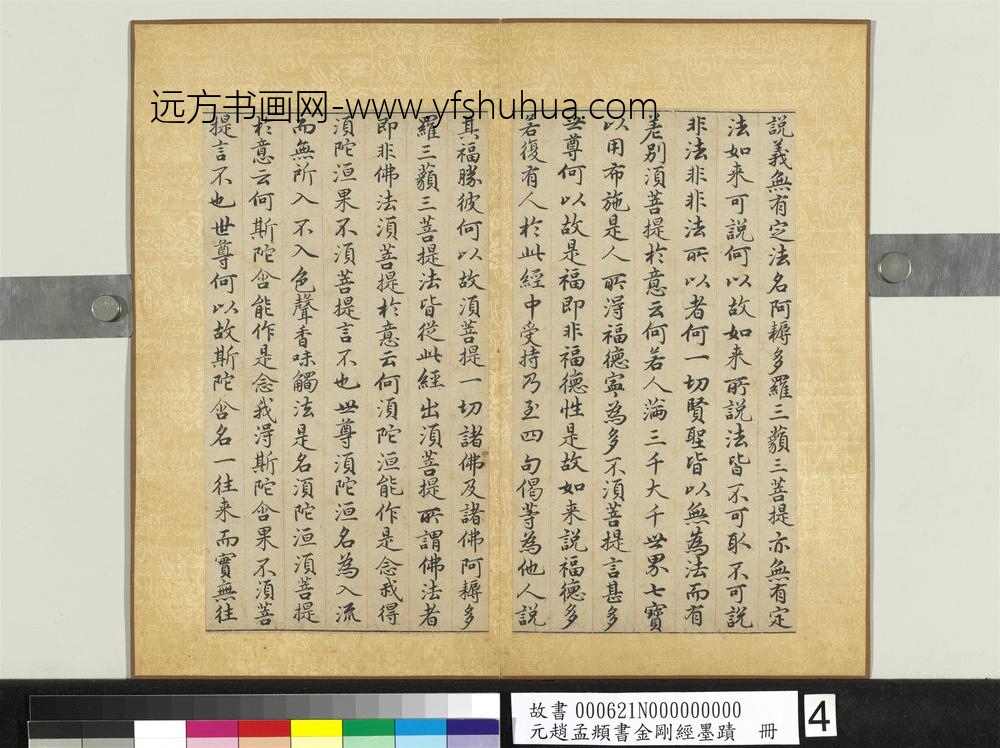 远方书画网-www.yfshuhua.com
說義無有定法名阿耨多羅三藐三菩提亦無有定
法如来可說何以故如来所說法皆不可取不可說
非法非非法所以者何一切賢聖皆以無為法而有
差別須菩提於意云何若人滿三千大千世界七寶
以用布施是人所得福德寧為多不須菩提言甚多
世尊何以故是福即非福德性是故如来說福德多
若復有人於此經中受持乃至四句偈等為他人說
其福勝彼何以故須菩提一切諸佛及諸佛阿耨多
羅三藐三菩提法皆從此經出須菩提所謂佛法者
即非佛法須菩提於意云何須陀洹能作是念我得
須陀洹果不須菩提言不也世尊須陀洹名為入流
而無所入不入色聲香味觸法是名須陀洹須菩提
於意云何斯陀含能作是念我得斯陀含果不須菩
提言不也世尊何以故斯陀含名一往来而實無往
故書 000621N000000000
元趙孟頫書金剛經墨蹟 冊
4